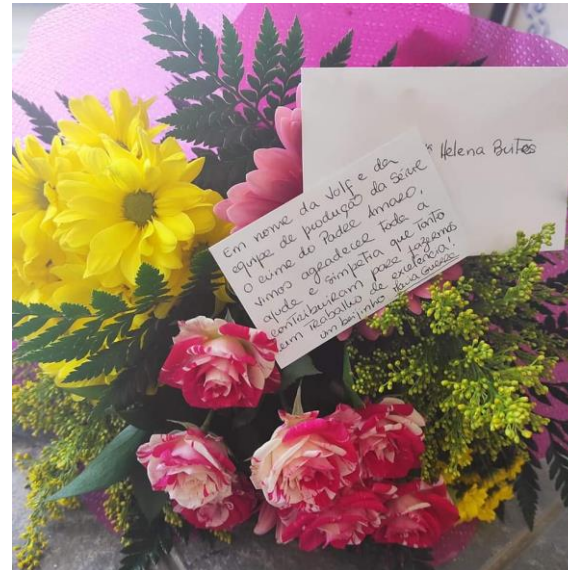 Helena Brites
Em nome da Volf e da
equipe de produção da Série
O crime do Padre Amaro,
vimos agradecer toda a
ajuda e simpatia que tanto
contribuiram para fazermos
um Trabalho de excelência!
um beijinho